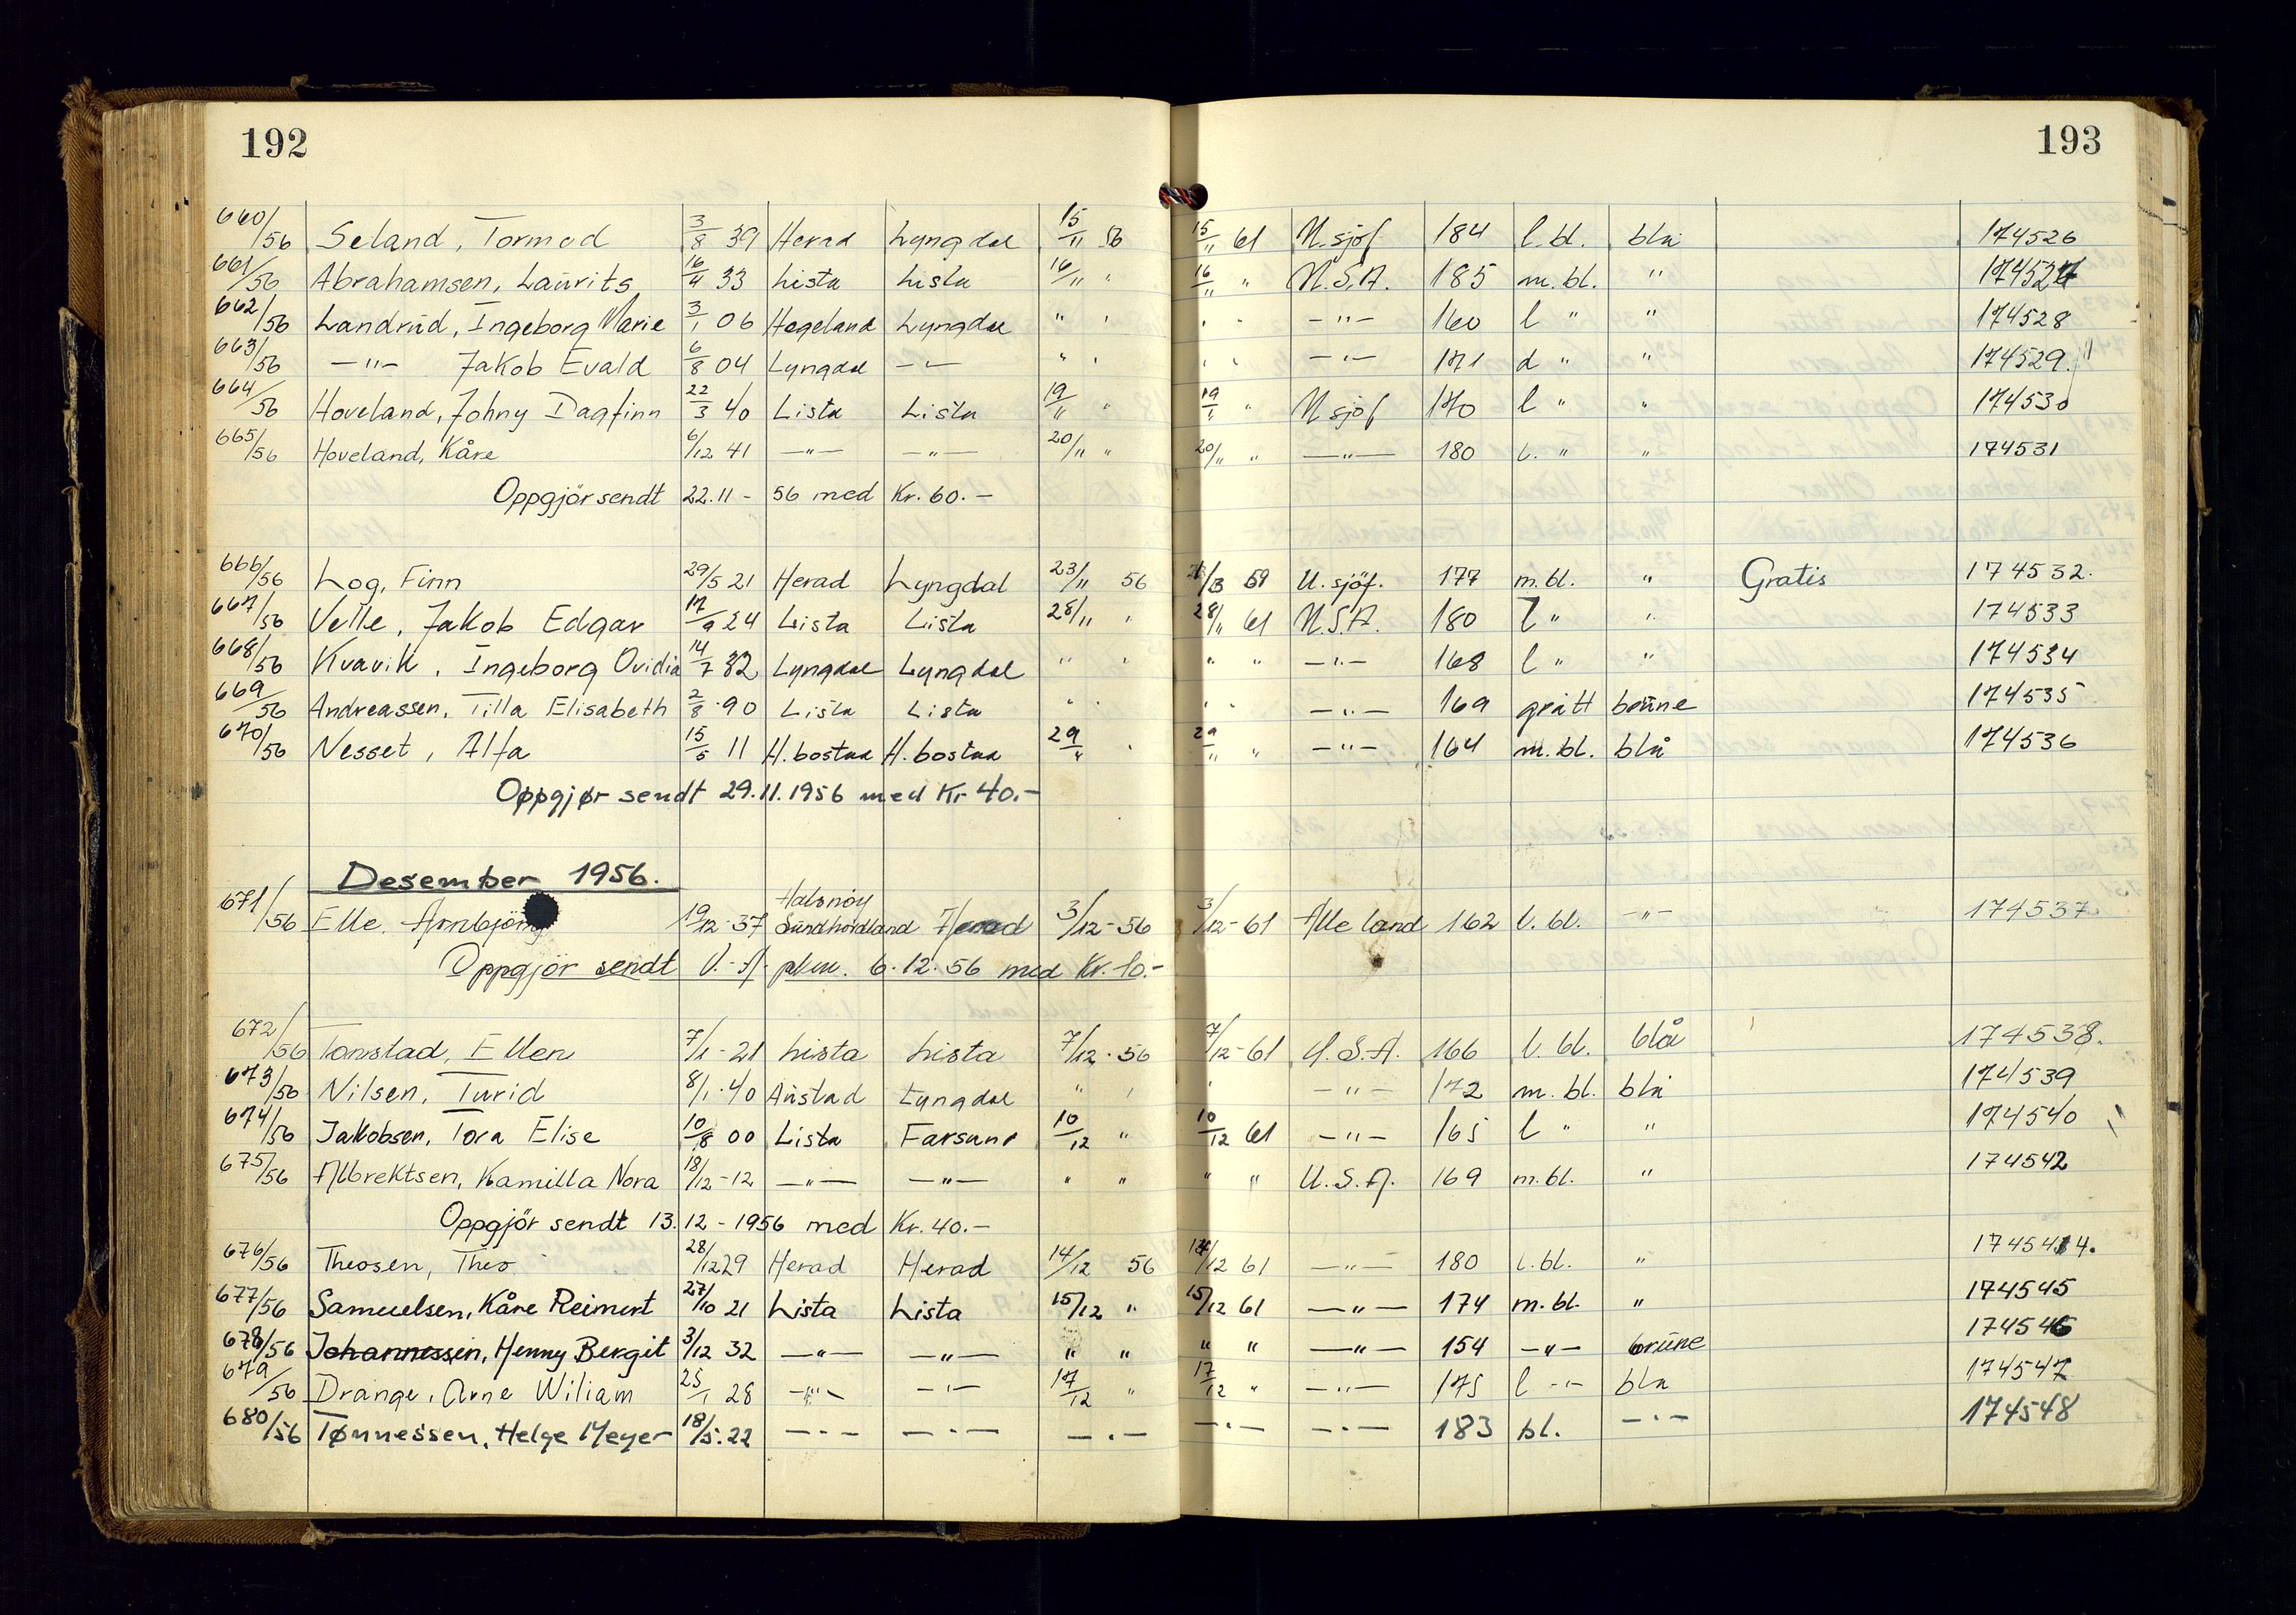 192
193
660/56 Seland, Tormod 3/8 39 Herad Lyngdal 15/11 56 15/11 61 U. sjöf 184 l. bl. blå 174526
661/56 Abrahamsen, Laurits 16/4 33 Lista Lista 16/11 " 16/11 " U.S.A. 185 m. bl. " 174527
662/56 Landrud, Ingeborg Marie 3/1 06 Hegeland Lyngdal " " " " —"— 160 l " " 174528
663/56 —"— Jakob Evald 6/8 04 Lyngdal —"— " " " " —"— 171 d " " 174529
664/56 Hoveland, Johny Dagfinn 22/3 40 Lista Lista 19/11 " 19/11 " U sjöf 170 l " " 174530
665/56 Hoveland, Kåre 6/12 41 —"— —"— 20/11 " 20/11 " —"— 180 l. " " 174531
Oppgjör sendt 22.11 - 56 med Kr. 60.-
666/56 Log, Finn 29/5 21 Herad Lyngdal 23/11 56 59 U. sjöf. 177 m. bl. " Gratis 174532.
667/56 Velle, Jakob Edgar 17/9 24 Lista Lista 28/11 " 28/11 61 U.S.A. 180 l " " 174533
668/56 Kvavik, Ingeborg Ovidia 14/7 32 Lyngdal Lyngdal " " " " —"— 168 l " " 174534
669/56 Andreassen, Tilla Elisabeth 2/8 90 Lista Lista " " " " —"— 169 grått brune 174535
670/56 Nesset, Alfa 15/5 11 H. bostad H. bostad 29/11 " 29/11 " —"— 164 m. bl. blå 174536
Oppgjør sendt 29.11.1956 med Kr 40.-
Desember 1956.
671/56 Elle, Arnbjörg 19/12-37 Halsnöy Sundhordland Herad 3/12-56 3/12-61 Alle land 162 l. bl. —"— 174537
Oppgjör sendt 6.12.56 med Kr. 10.-
672/56 Tonstad, Ellen 7/1-21 Lista Lista 7/12-56 7/12-61 U.S.A. 166 l. bl. blå 174538.
673/56 Nilsen, Turid 8/1.40 Austad Lyngdal " " " —"— 172 m. bl. blå 174539
674/56 Jakobsen, Tora Elise 10/8 00 Lista Farsund 10/12 " 10/12 61 —"— 165 l " " 174540
675/56 Albrektsen, Kamilla Nora 18/12-12 —"— —"— " " " " U.S.A. 169 m. bl. " 174542
Oppgjör sendt 13.12-1956 med Kr. 40.-
676/56 Theosen, Theo 28/12 29 Herad Herad 14/12 56 14/12 61 —"— 180 l. bl. " 174544.
677/56 Samuelsen, Kåre Reimert 27/10 21 Lista Lista 15/12 " 15/12 61 —"— 174 m. bl. " 174545
678/56 Johannessen, Henny Bergit 3/12 32 —"— —"— " " " " —"— 154 —"— brune 174546
679/56 Drange, Arne Wiliam 25/1 28 —"— —"— 17/12 " 17/12 " —"— 175 l —"— blå 174547
680/56 Tønnessen, Helge Meyer 18/5.22 —"— —"— —"— —"— —"— 183 bl. —"— 174548